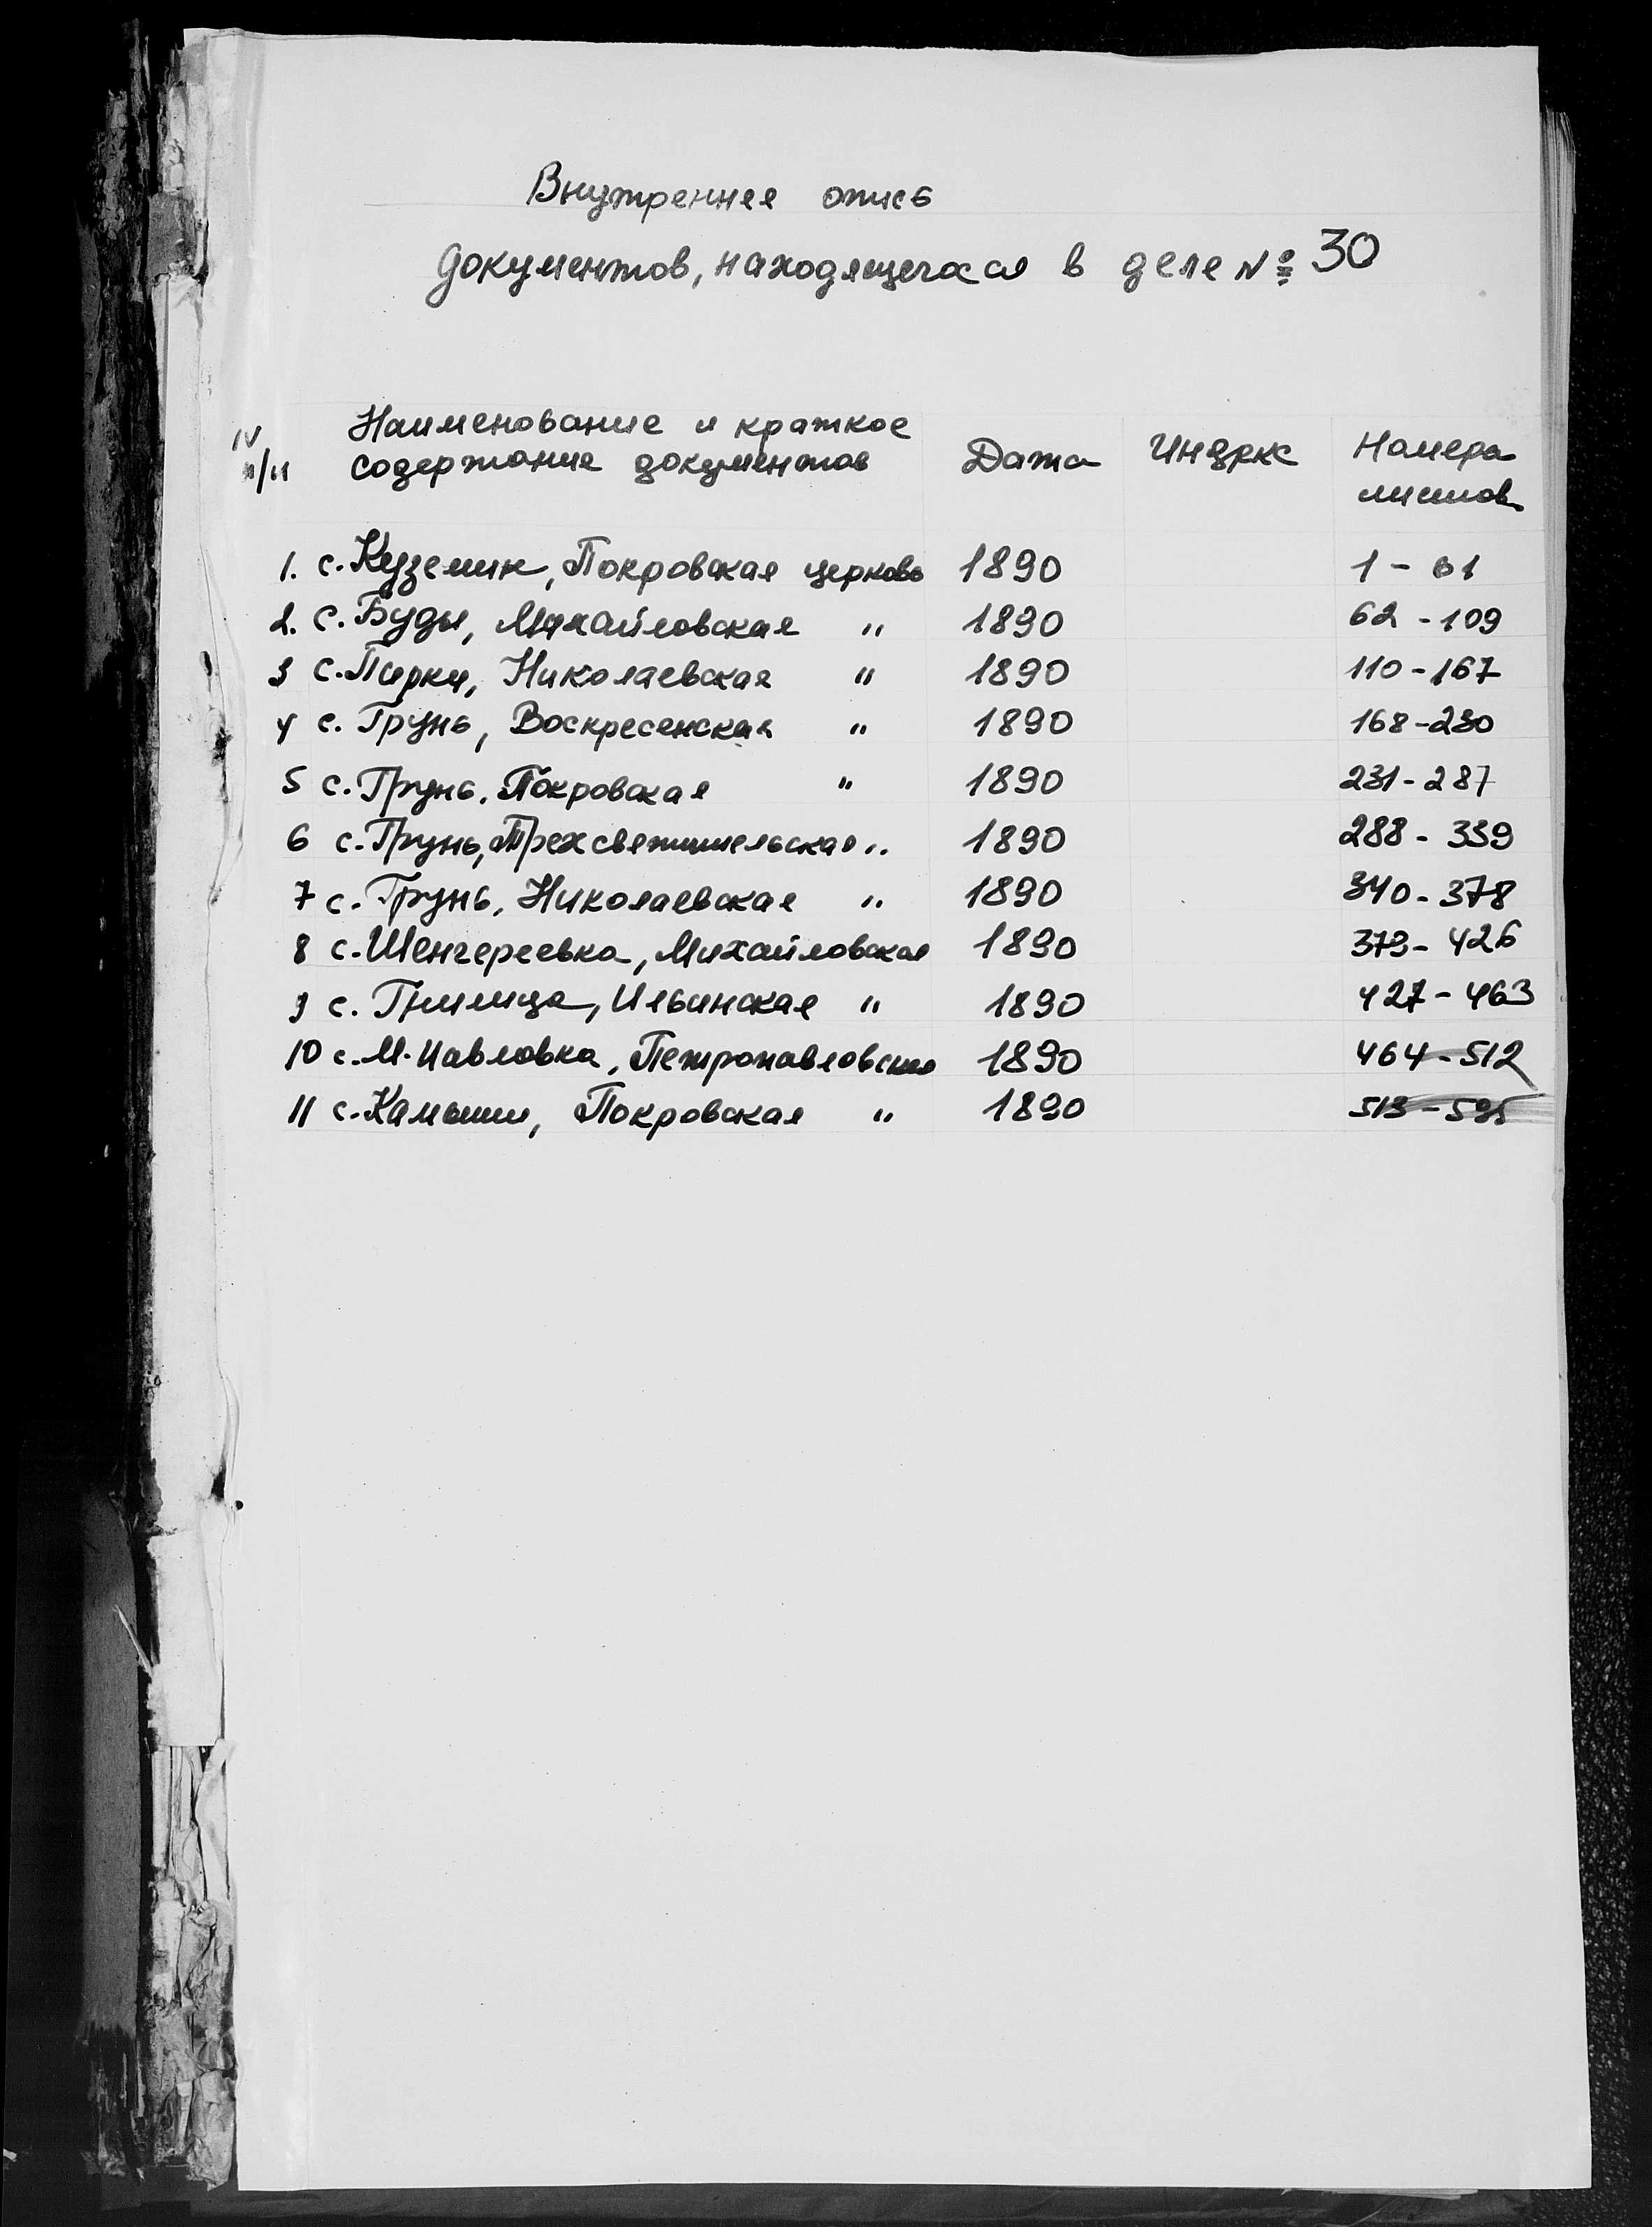 Внутреннея опись
документов, находящегося в деле № 30
N Наименование и краткое
п/п содержание документов Дата Индекс Номера
листов
1. с. Куземин, Покровская церковь 1890 1 - 61
2. с. Буды, Михайловская " 1890 62 - 109
3 с. Пирки, Николаевская " 1890 110 - 167
4 с. Грунь, Воскресенская " 1890 168 - 230
5 с. Грунь, Покровская " 1890 231 - 287
6 с. Грунь, Трехсвятительская " 1890 288 - 339
7 с. Грунь, Николаевская " 1890 340 - 378
8 с. Шенгереевка, Михайловская 1890 379 - 426
9 с. Гнилица, Ильинская " 1890 427 - 463
10 с. М. Павловка, Петропавловская 1890 464 - 512
11 с. Камыши, Покровская " 1890 513 -